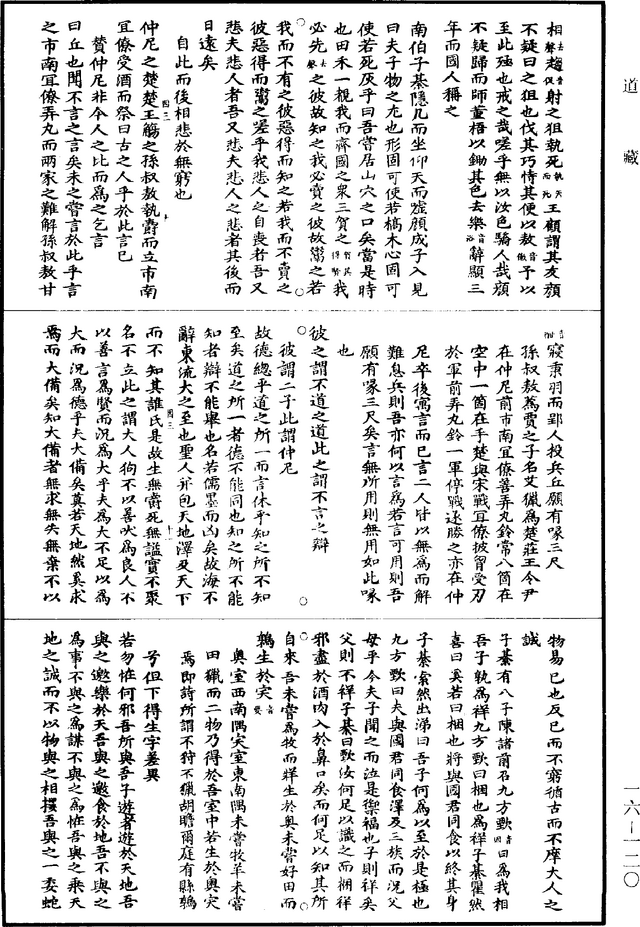 道藏
相去聲趨音促射之狙執死執而死王顧謂其友顏
不疑曰之狙也伐其巧恃其便以敖音傲予以
至此殛也戒之哉嗟乎無以汝色驕人哉顏
不疑歸而師董梧以鋤其色去樂音洛辭顯三
年而國人稱之
南伯子綦隱几而坐仰天而噓顏成子入見
曰夫子物之尤也形固可使若槁木心固可
使若死灰乎曰吾嘗居山穴之口矣當是時
也田禾一覩我而齊國之衆三賀之賀民得賢我
必先去聲之彼故知之我必賣之彼故鬻之若
我而不有之彼惡得而知之若我而不賣之
彼惡得而鬻之嗟乎我悲人之自喪者吾又
悲夫悲人者吾又悲夫悲人之悲者其後而
日遠矣
自此而後相悲於無窮也
仲尼之楚楚王觴之孫叔敖執爵而立市南
宜僚受酒而祭曰古之人乎於此言已
贊仲尼非今人之比而為之乞言
曰丘也聞不言之言矣未之嘗言於此乎言
之市南宜僚弄丸而兩家之難解孫叔敖甘
寢秉羽而郢人投兵丘願有喙三尺
孫叔敖為賈之子名艾獵為楚莊王令尹
在仲尼前市南宜僚善弄丸鈴常八箇在
空中一箇在手楚與宋戰宜僚披胷受刃
於軍前弄丸鈴一軍停戰遂勝之亦在仲
尼卒後寓言而已言二人皆以無為而解
難息兵則吾亦何以言為若言可用則吾
願有喙三尺矣言無所用則無用如此喙
也
彼之謂不道之道此之謂不言之辯
彼謂二子此謂仲尼
故德總乎道之所一而言休乎知之所不知
至矣道之所一者德不能同也知之所不能
知者辯不能舉也名若儒墨而凶矣故海不
辭東流大之至也聖人并包天地澤及天下
而不知其誰氏是故生無爵死無謚實不聚
名不立此之謂大人狗不以善吠為良人不
以善言為賢而況為大乎夫為大不足以為
大而況為德乎夫大備矣莫若天地然奚求
焉而大備矣知大備者無求無失無棄不以
物易已也反已而不窮循古而不摩大人之
誠
子綦有八子陳諸前召九方歅音因曰為我相
吾子孰為祥九方歅曰梱也為祥子綦瞿然
喜曰奚若曰梱也將與國君同食以終其身
子綦索然出涕曰吾子何為以至於是極也
九方歅曰夫與國君同食澤及三族而況父
母乎今夫子聞之而泣是禦福也子則祥矣
父則不祥子綦曰歅汝何足以識之而梱祥
邪盡於酒肉入於鼻口矣而何足以知其所
自來吾未嘗為牧而牂生於奧未嘗好田而
鶉生於宎
奧室西南隅宎室東南隅未嘗牧羊未嘗
田獵而二物乃得於吾室中若生於奧宎
焉即詩所謂不狩不獵胡瞻爾庭有縣鶉
兮但下得生字差異
若勿怪何邪吾所與吾子遊者遊於天地吾
與之邀樂於天吾與之邀食於地吾不與之
為事不與之為謀不與之為怪吾與之乘天
地之誠而不以物與之相攖吾與之一委蛇
一六—一二〇